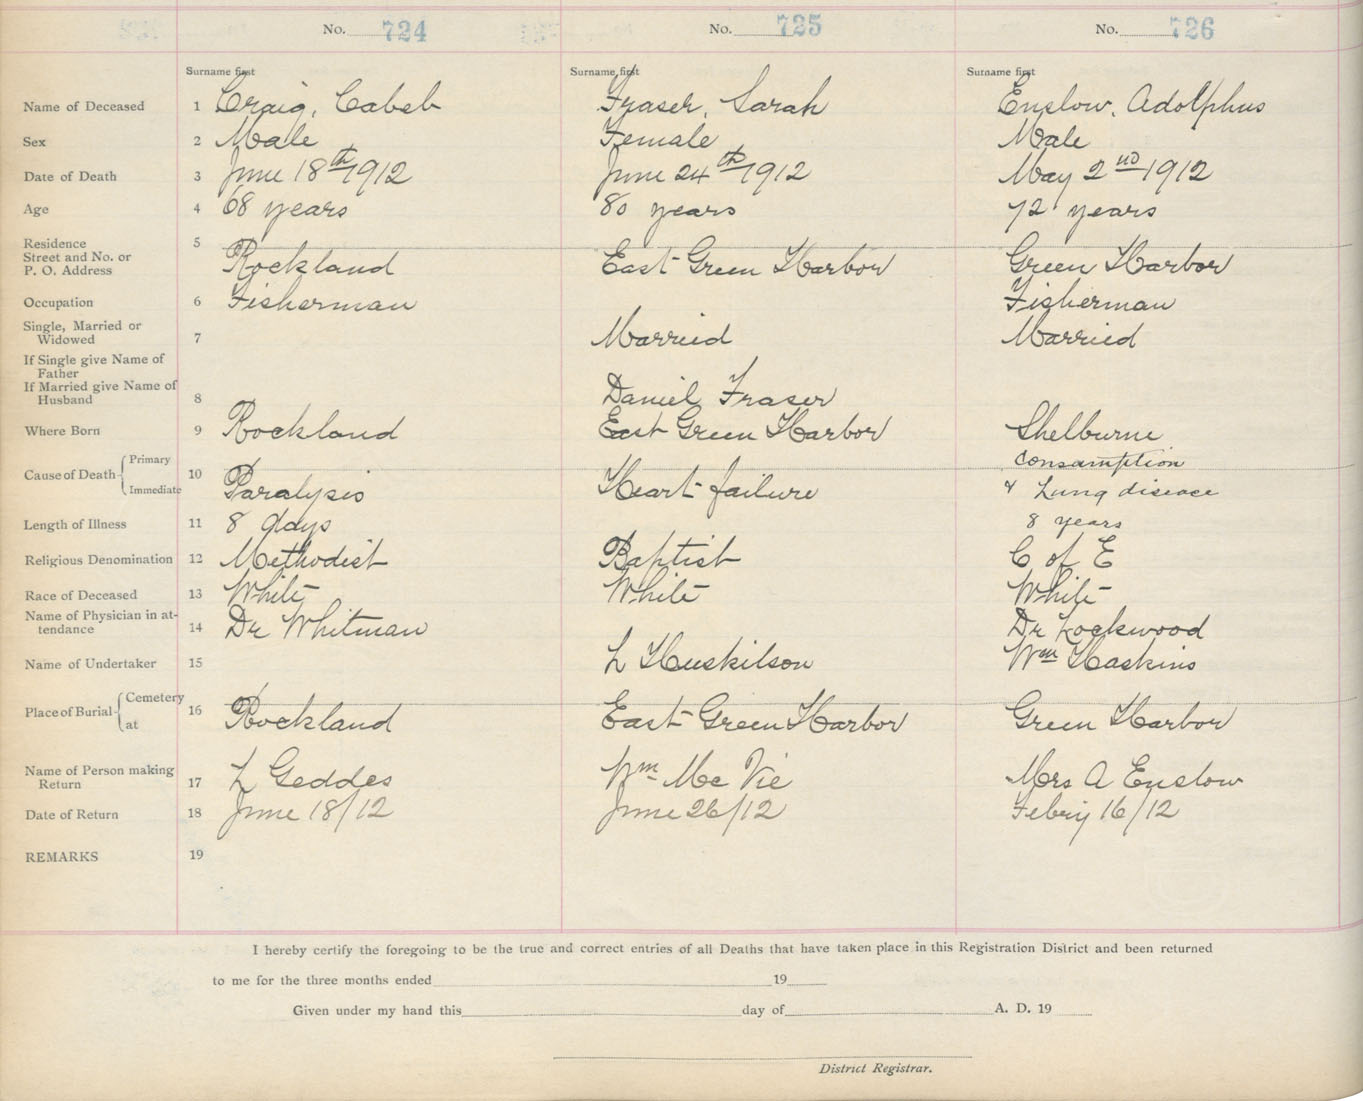 No. 724 No. 725 No. 726
Surname first Surname first Surname first
Name of Deceased 1 Craig, Cabeb Fraser, Sarah Enslow, Adolphus
Sex 2 Male Female Male
Date of Death 3 June 18th 1912 June 24th 1912 May 2nd 1912
Age 4 68 years 80 years 72 years
Residence 5
Street and No. or
P. O. Address Rockland East Green Harbor Green Harbor
Occupation 6 Fisherman Fisherman
Single, Married or
Widowed 7 Married Married
If Single give Name of
Father
If Married give Name of
Husband 8 Daniel Fraser
Where Born 9 Rockland East Green Harbor Shelburne
Cause of Death Primary 10 Consamption
Immediate Paralysis Heart failure & Lung diseace
Length of Illness 11 8 days 8 years
Religious Denomination 12 Methodist Baptist C of E
Race of Deceased 13 White White White
Name of Physician in at-
tendance 14 Dr Whitman Dr Lockwood
Name of Undertaker 15 L Huskilson Wm Haskins
Place of Burial Cemetery 16
at Rockland East Green Harbor Green Harbor
Name of Person making
Return 17 L Geddes Wm Mc Vie Mrs A Enslow
Date of Return 18 June 18/12 June 26/12 Febry 16/12
REMARKS 19
I hereby certify the foregoing to be the true and correct entries of all Deaths that have taken place in this Registration District and been returned
to me for the three months ended 19
Given under my hand this day of A. D. 19
District Registrar.